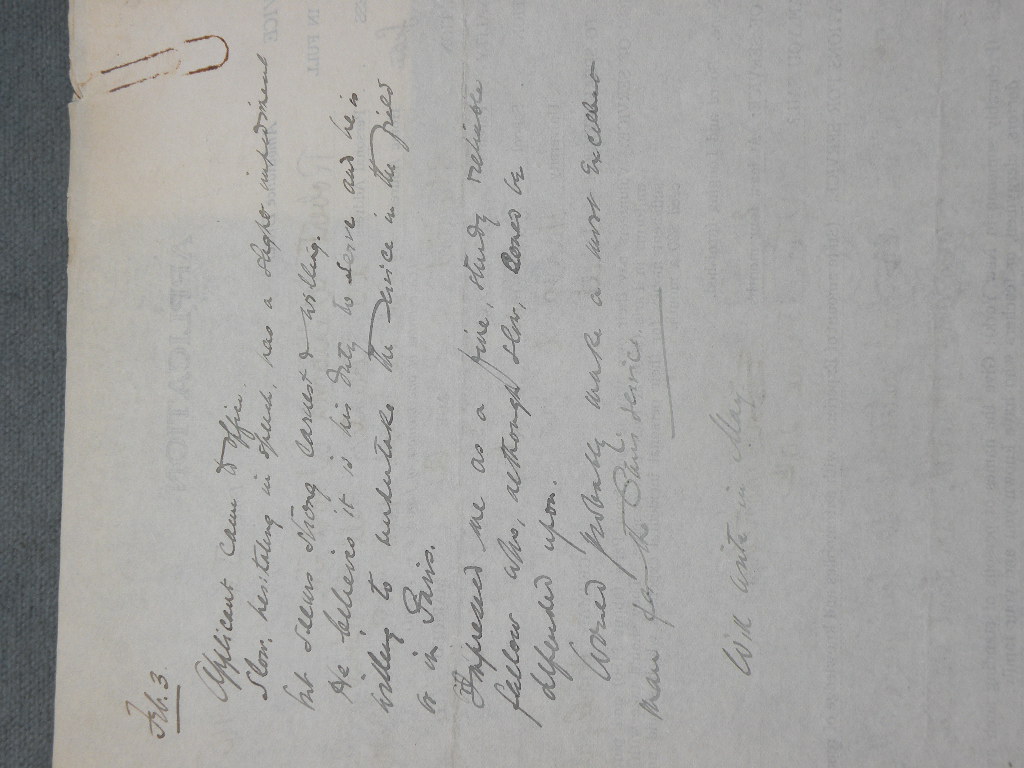 Feb. 3
Applicant came to office.
Slow, hesitating in speech, has a slight impediment
but seems strong earnest & willing.
He believes it is his duty to serve and he is
willing to undertake the service in the field
or in Paris.
Impressed me as a fine, sturdy reliable
fellow who, although slow, could be
depended upon.
Would probably make a most excellent
man for the Paris service.
Will write in May